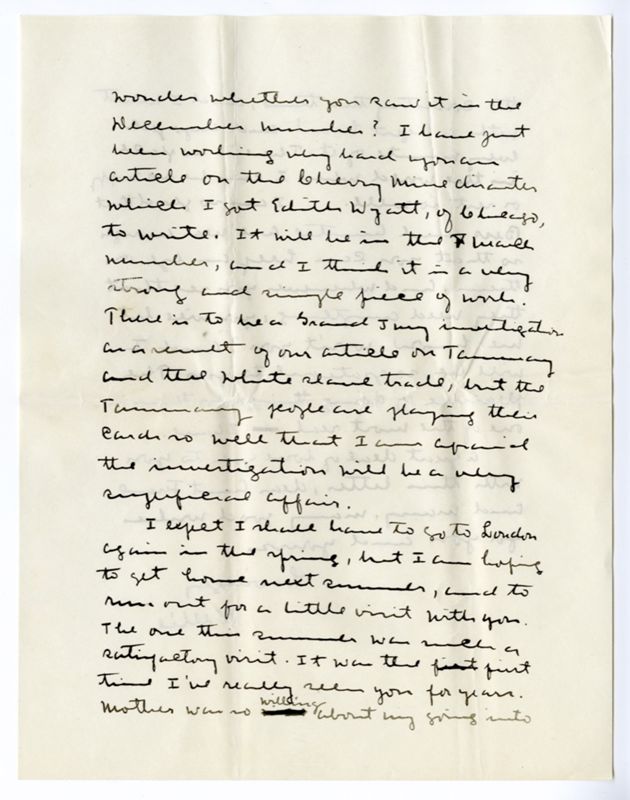 wonder whether you saw it in the
December number? I have just
been working very hard upon an
article on the Cherry Mine disaster
which I got Edith Wyatt, of Chicago,
to write. It will be in the March
number, and I think it is a very
strong and simple piece of work.
There is to be a Grand Jury investigation
as a result of our article on Tammany
and the white slave trade, but the
Tammany people are playing their
cards so well that I am afraid
the investigation will be a very
superficial affair.
I expect I shall have to go to London
again in the spring, but I am hoping
to get home next summer, and to
run out for a little visit with you.
The one this summer was such a
satisfactory visit. It was the first
time I've really seen you for years.
Mother was so willing about my going into